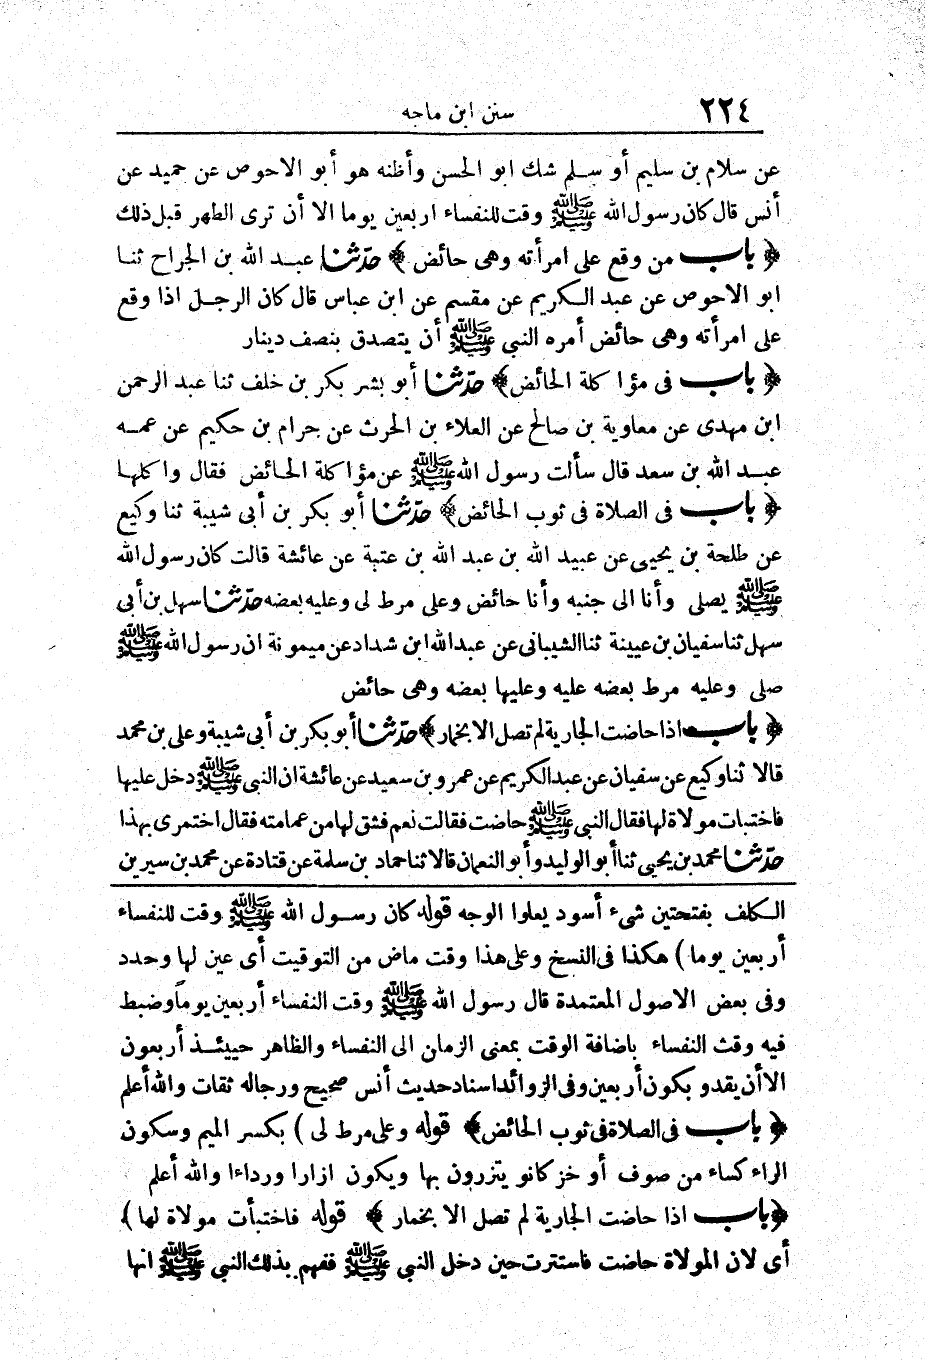 ٢٢٤ سنن ابن ماجه
عن سلام بن سليم أو سلم شك ابو الحسن وأظنه هو أبو الاحوص عن حميد عن
أنس قال كان رسول الله ﷺ وقت للنفساء اربعين يوما الا أن ترى الطهر قبل ذلك
﴿ باب من وقع على امرأته وهى حائض ﴾ حدّثنا عبد الله بن الجراح ثنا
ابو الاحوص عن عبد الكريم عن مقسم عن ابن عباس قال كان الرجل اذا وقع
على امرأته وهى حائض أمره النبى ﷺ أن يتصدق بنصف دينار
﴿ باب فى مؤاكلة الحائض ﴾ حدّثنا أبو بشر بكر بن خلف ثنا عبد الرحمن
ابن مهدى عن معاوية بن صالح عن العلاء بن الحرث عن حرام بن حكيم عن عمه
عبد الله بن سعد قال سألت رسول الله ﷺ عن مؤاكلة الحائض فقال واكلها
﴿ باب فى الصلاة فى ثوب الحائض ﴾ حدّثنا أبو بكر بن أبى شيبة ثنا وكيع
عن طلحة بن يحيى عن عبيد الله بن عبد الله بن عتبة عن عائشة قالت كان رسول الله
ﷺ يصلى وأنا الى جنبه وأنا حائض وعلى مرط لى وعليه بعضه حدّثنا سهل بن أبى
سهل ثنا سفيان بن عيينة ثنا الشيبانى عن عبد الله ابن شداد عن ميمونة ان رسول الله ﷺ
صلى وعليه مرط بعضه عليه وعليها بعضه وهى حائض
﴿ باب اذا حاضت الجارية لم تصل الا بخمار ﴾ حدّثنا أبو بكر بن أبى شيبة وعلى بن محمد
قالا ثنا وكيع عن سفيان عن عبد الكريم عن عمرو بن سعيد عن عائشة ان النبى ﷺ دخل عليها
فاختبات مولاة لها فقال النبى ﷺ حاضت فقالت نعم فشق لها من عمامته فقال اختمرى بهذا
حدّثنا محمد بن يحيى ثنا أبو الوليد وأبو النعمان قالا ثنا حماد بن سلمة عن قتادة عن محمد بن سيرين
الكلف بفتحتين شىء أسود يعلوا الوجه قوله كان رسول الله ﷺ وقت للنفساء
أربعين يوما ) هكذا فى النسخ وعلى هذا وقت ماض من التوقيت أى عين لها وحدد
وفى بعض الاصول المعتمدة قال رسول الله ﷺ وقت النفساء أربعين يوماً وضبط
فيه وقت النفساء باضافة الوقت بمعنى الزمان الى النفساء والظاهر حيئذ أربعون
الا أن يقدو بكون أربعين وفى الزوائد اسناد حديث أنس صحيح ورجاله ثقات والله أعلم
﴿ باب فى الصلاة فى ثوب الحائض ﴾ قوله وعلى مرط لى ) بكسر الميم وسكون
الراء كساء من صوف أو خز كانو يتزرون بها ويكون ازارا ورداءا والله أعلم
﴿ باب اذا حاضت الجارية لم تصل الا بخمار ﴾ قوله فاختبأت مولاة لها )
أى لان المولاة حاضت فاستترت حين دخل النبى ﷺ ففهم بذلك النبى ﷺ انها